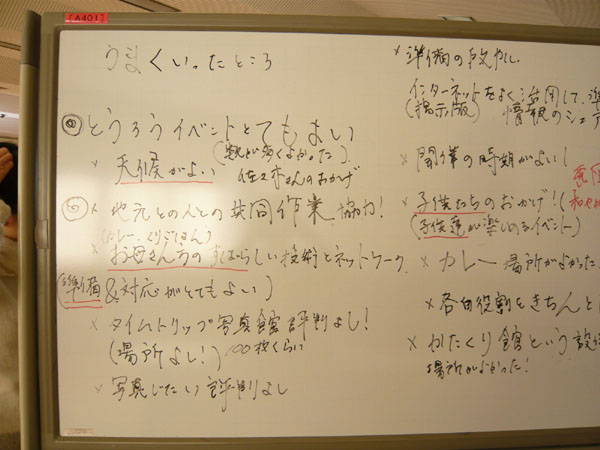 [A401]
うまくいったところ
とうろうイベントとてもよい
× 天候がよい
佐々木さんのおかげ
× 地元との人との共同作業、協力!
(カレー、くりごはん)
× お母さんたちのすばらしい技術とネットワーク
(準備&対応がとてもよい)
× タイムトリップ写真館評判よし!
(場所よし!) 100枚くらい
× 写真じたい評判よし
× 準備の手
インターネットをよく活用して、準
(掲示版) 情報のシェア
× 開催の時期がよい!
× 子供たちのおかげ!
(子供達が楽しめるイベント)
× カレー 場所がよかった
× 各自役割をきちんと
× かたくり館という設
場所がよかった!